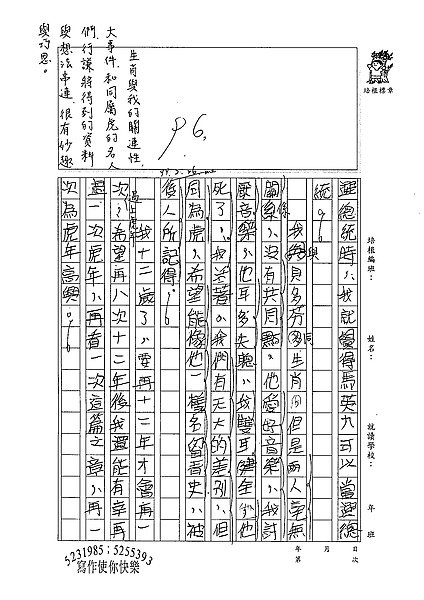 選總統時，我就覺得馬英九可以當選總
統。
我與貝多芬同生肖，但是兩人毫無
關係，沒有共同點。他愛好音樂，我討
厭音樂，他耳多失聰，我雙耳健全，他
死了，我活著。我們有天大的差別，但
同為虎，希望能像他一樣名留青史，被
後人所記得。
我十二歲了，要再十二年才會再一
次過生肖虎年，希望再八次十二年後我還能有幸再一
過一次虎年，再看一次這篇文章，再一
次為虎年高興。
生肖與我的關連性，
大事件，和同屬虎的名人
們，行謙將得到的資料
與想法串連，很有妙趣
與巧思。
96
培根標章
培根編班：
姓名：
就讀學校：
年 班
年 月 日 次
5231985；5255393
寫作使你快樂